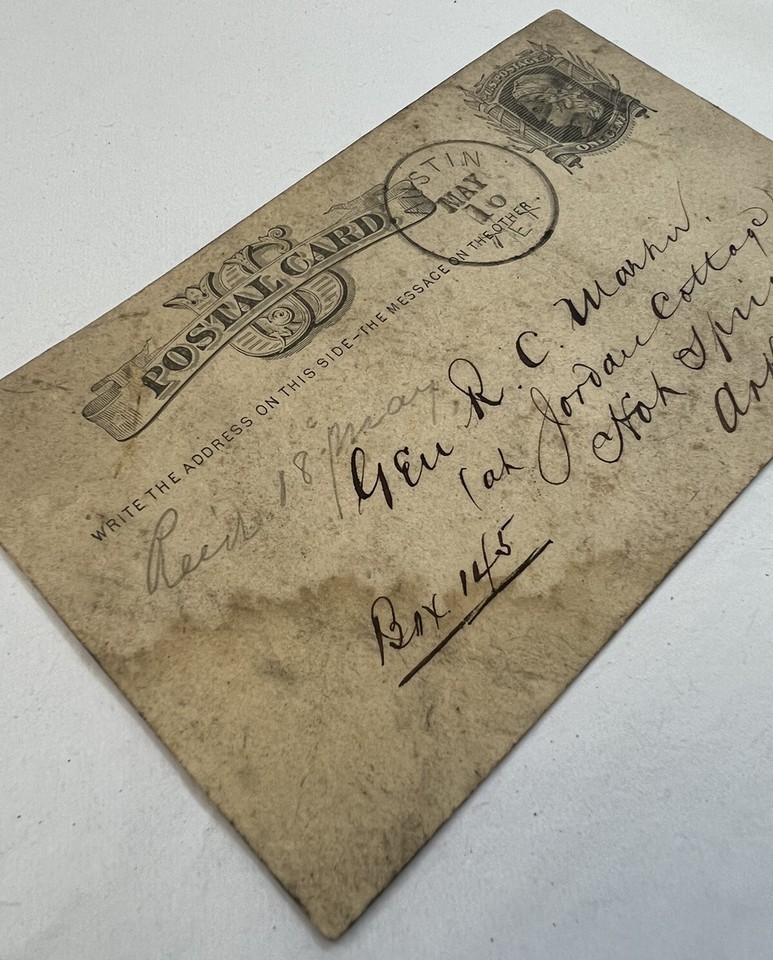 U.S. POSTAGE
ONE CENT
POSTAL CARD.
AUSTIN
MAY
10
TEX
WRITE THE ADDRESS ON THIS SIDE-THE MESSAGE ON THE OTHER.
18 May
Gen R. C.
(at Jordan Cottage
Hot Spri
Ark
Box 145